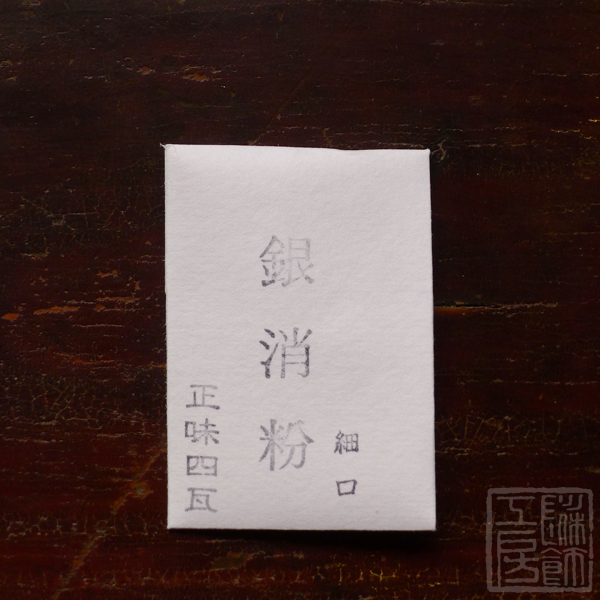 銀消粉
細口
正味四瓦
工房